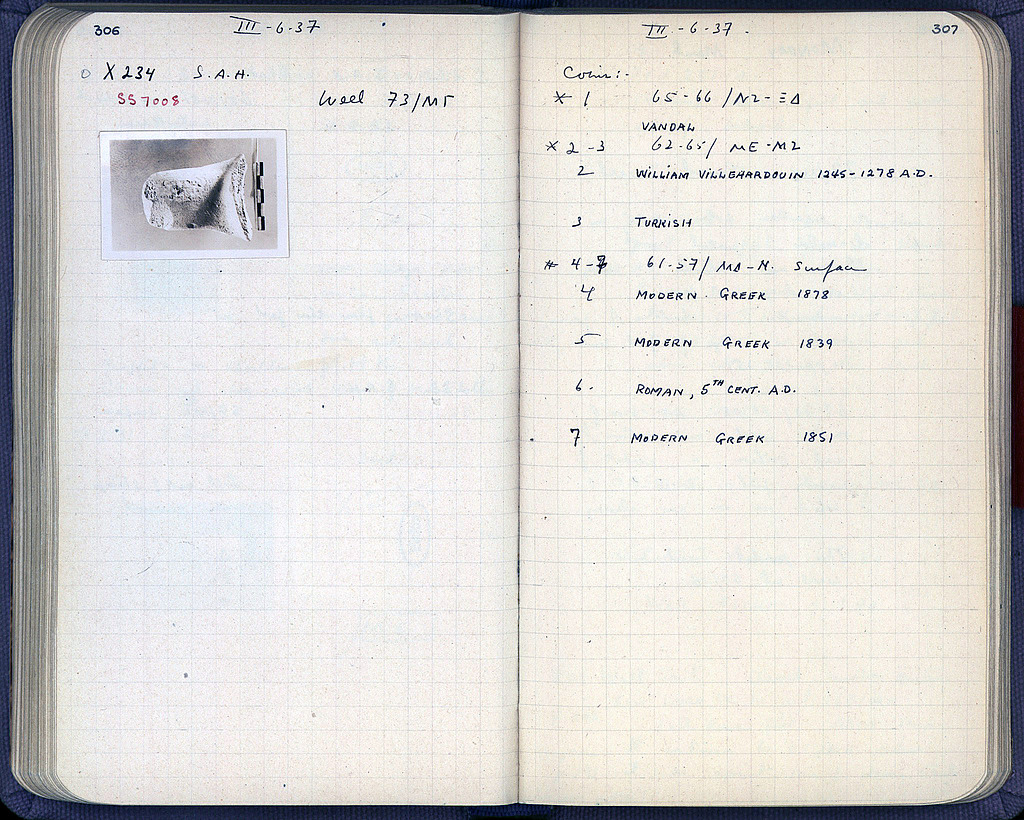 306
III-6-37
X 234 S.A.H.
SS 7008
Well 73/ΜΓ
III-6-37.
307
Coins:-
* 1 65-66/ΝΖ-ΞΔ
VANDAL
* 2-3 62-65/ΝΕ-ΜΖ
2 WILLIAM VILLEHARDOUIN 1245-1278 A.D.
3 TURKISH
* 4-7 61-57/ΜΔ-Ν. Surface
4 MODERN GREEK 1878
5 MODERN GREEK 1839
6. ROMAN, 5TH CENT. A.D.
7 MODERN GREEK 1851